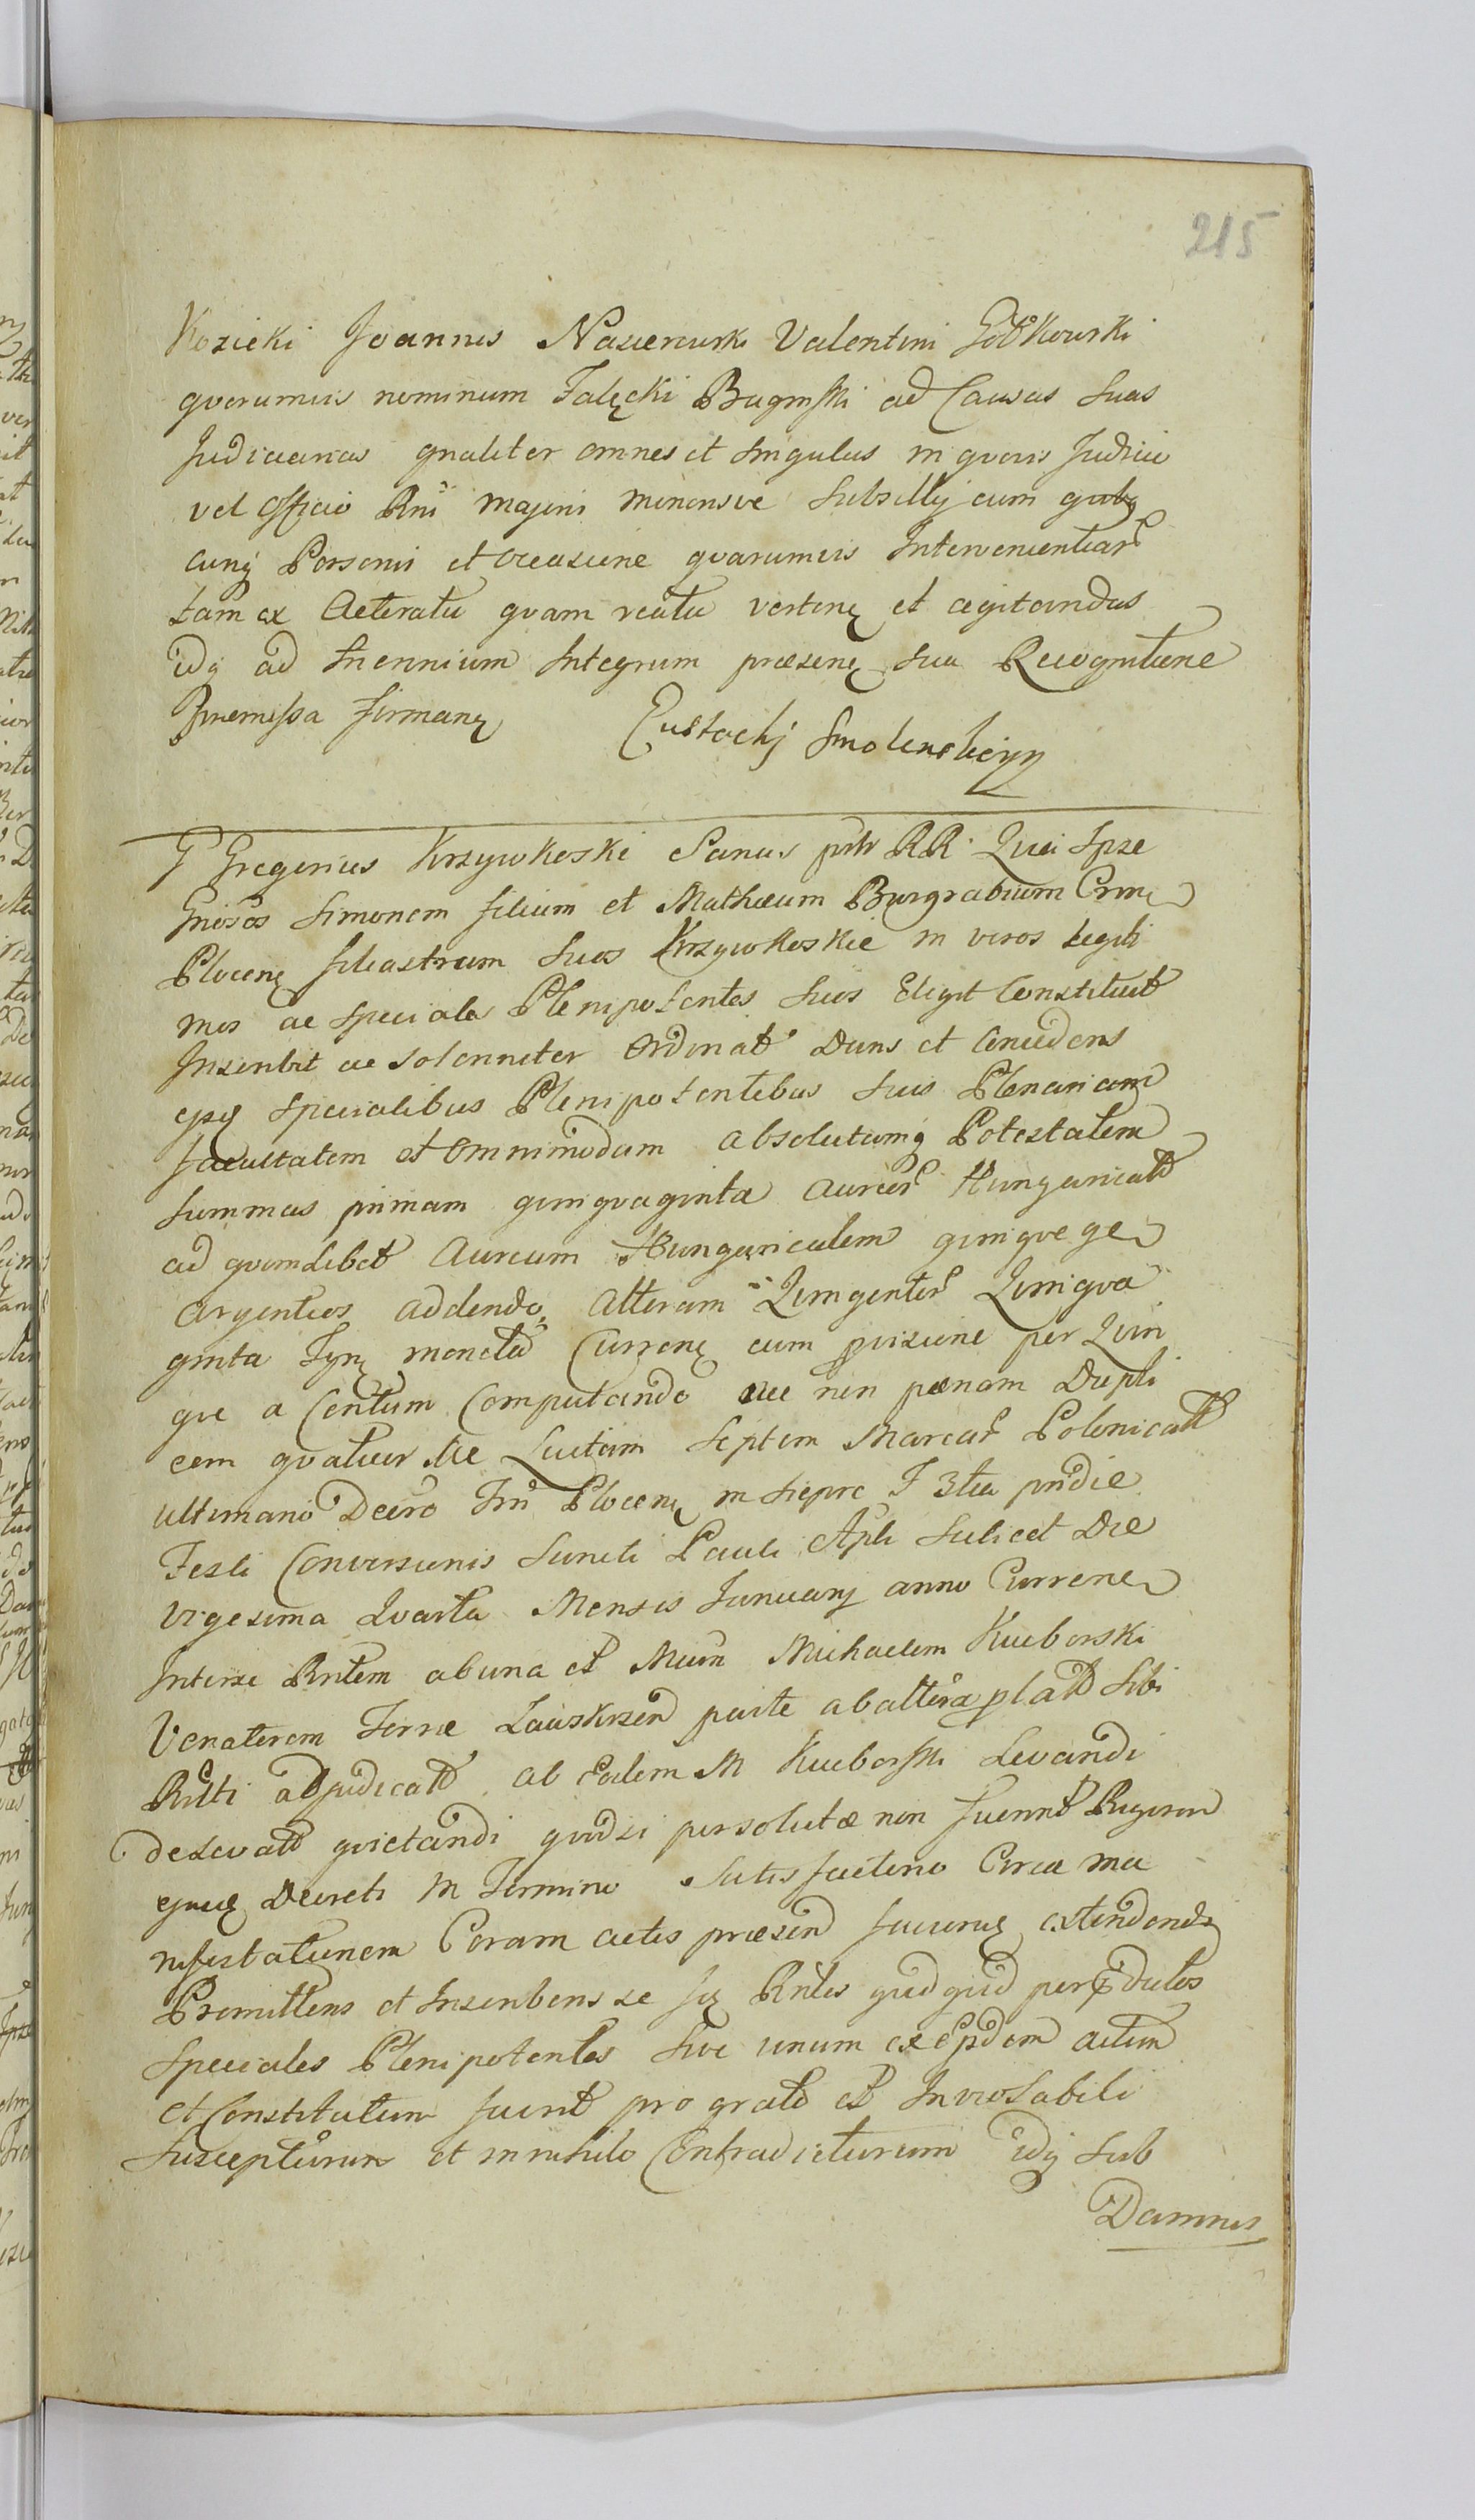 215
Kozicki Joannis Nasierowski Valentini Gotkowski
qvorumvis nominum Falęcki Baginski ad Causas suas
Judiciarias gnaliter omnes et singulas in qvovis Judicio
vel officio Rni majoris minorisve Subsellij cum qvibq
cunq Personis et occasione qvarumvis Intervenientiar
tam ex Actoratu qvam reatu verten et agitandas
idq ad Triennium Integrum præsen sua Recognitione
Præmissa firman Eustachj Smolenski
G Gregorius Krzywkoski Sanus prtr RR. Qvia Ipse
Gnosos Simonem filium et Mathæum Burgrabium Crem
Plocen filiastrum suos Krzywkoskie in veros Legiti
mos ac speciales Plenipotentes suos Elegit Constituit
Inscribit ac solenniter Ordinat Dans et Concedens
ejsq specialibus Plenipotentibus suis Plenariam
facultatem et omnimodam absolutamq Potestatem
Summas primam qvinqvaginta Aureor Hungaricall
ad qvemlibet Aureum Hungaricalem qvinqve ge
argenteos addendo, alteram Qvingentor Qvinqva
ginta Fpn moneta Curren cum provisione per Qvin
qve a Centum Computando nec non pænam Dupli
cem qvatuor Me Luctam Septem Marcar Polonicall
ultimario Decro Trn Plocen in Sieprc F 3tia pridie
Festi Conversionis Sancti Pauli Apli Scilicet Die
vigesima Qvarta Mensis Januarij anno Curren
Inter se Rntem ab una et Mcum Michaelem Kucborski
Venatorem Terræ Zauskrzen parte ab altera plall sibi
Rnti adjudicall ab Eodem M Kucborski Levandi
de Levall qvietandi qvodsi persolutæ non fuerint Rigorem
ejusd Decreti in Termino Satisfactorio Circa ma
nifestationem Coram actis præsen facien extenden
Promittens et Inscribens se Rntes qvidqvid per ductos
speciales Plenipotentes sive unum ex Epdem actum
et Constitutum fuerit pro grato et Inviolabili
Suscepturum et in nihilo Contradicturum idq sub
Damnis